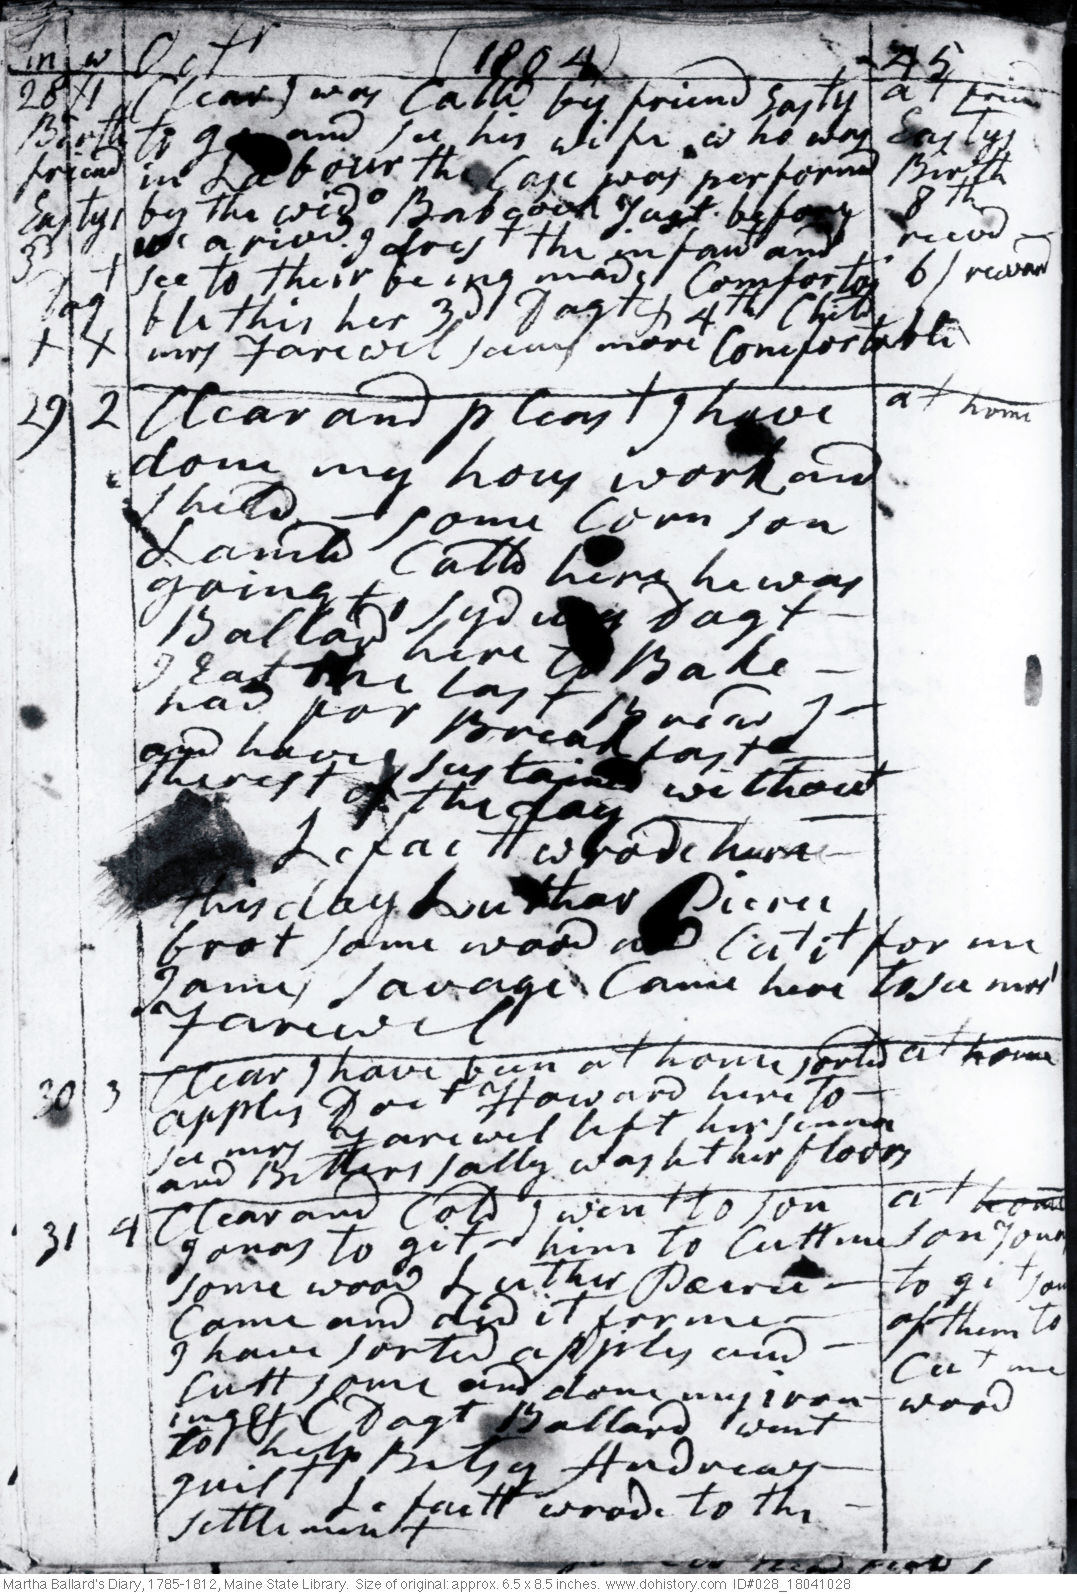 m w Oct 1804 45
28 1 Clear I was Calld by friend Easty at frind
Birth to go and see his wife who was Eastys
friend in Labour the Case was performd Birth
Eastys by the wid Babcock Just before 8th
3d we arivd I drest the infant and recevd
Dagt see to their being made Comforta 6/ reward
ble this her 3d Dagt & 4th Child
+ + mrs Farewel seems more Comfortable
29 2 Clear and pleast I have at home
done my hous work and
shelld some Corn son
Lambd Calld here he was
going to Sydney Dagt
Ballard here to Bake
I Eat the last Bread I
had for Break fast
and have sustaind without
the rest of the day
Lefaett wrode here
this day Luthar Pierce
brot some wood and Cut it for me
James Savage Came here to see mrs
Farewel
30 3 Clear I have been at home sorted at home
apples Doct Howard here to
see mrs Farewel left her senna
and Bitters sally washt her floors
31 4 Clear and Cold I went to son at home
Jonas to git him to Cutt me son Jonas
some wood Luther Peirce to git some
Came and did it for me of them to
I have sorted apples and Cut me
Cutt some and done my iron wood
ing &c Dagt Ballard went
to help Betsy Andrews
quilt Lefaett wrode to the
settlement
Martha Ballard's Diary, 1785-1812, Maine State Library. Size of original: approx. 6.5 x 8.5 inches. www.dohistory.com ID#028_18041028